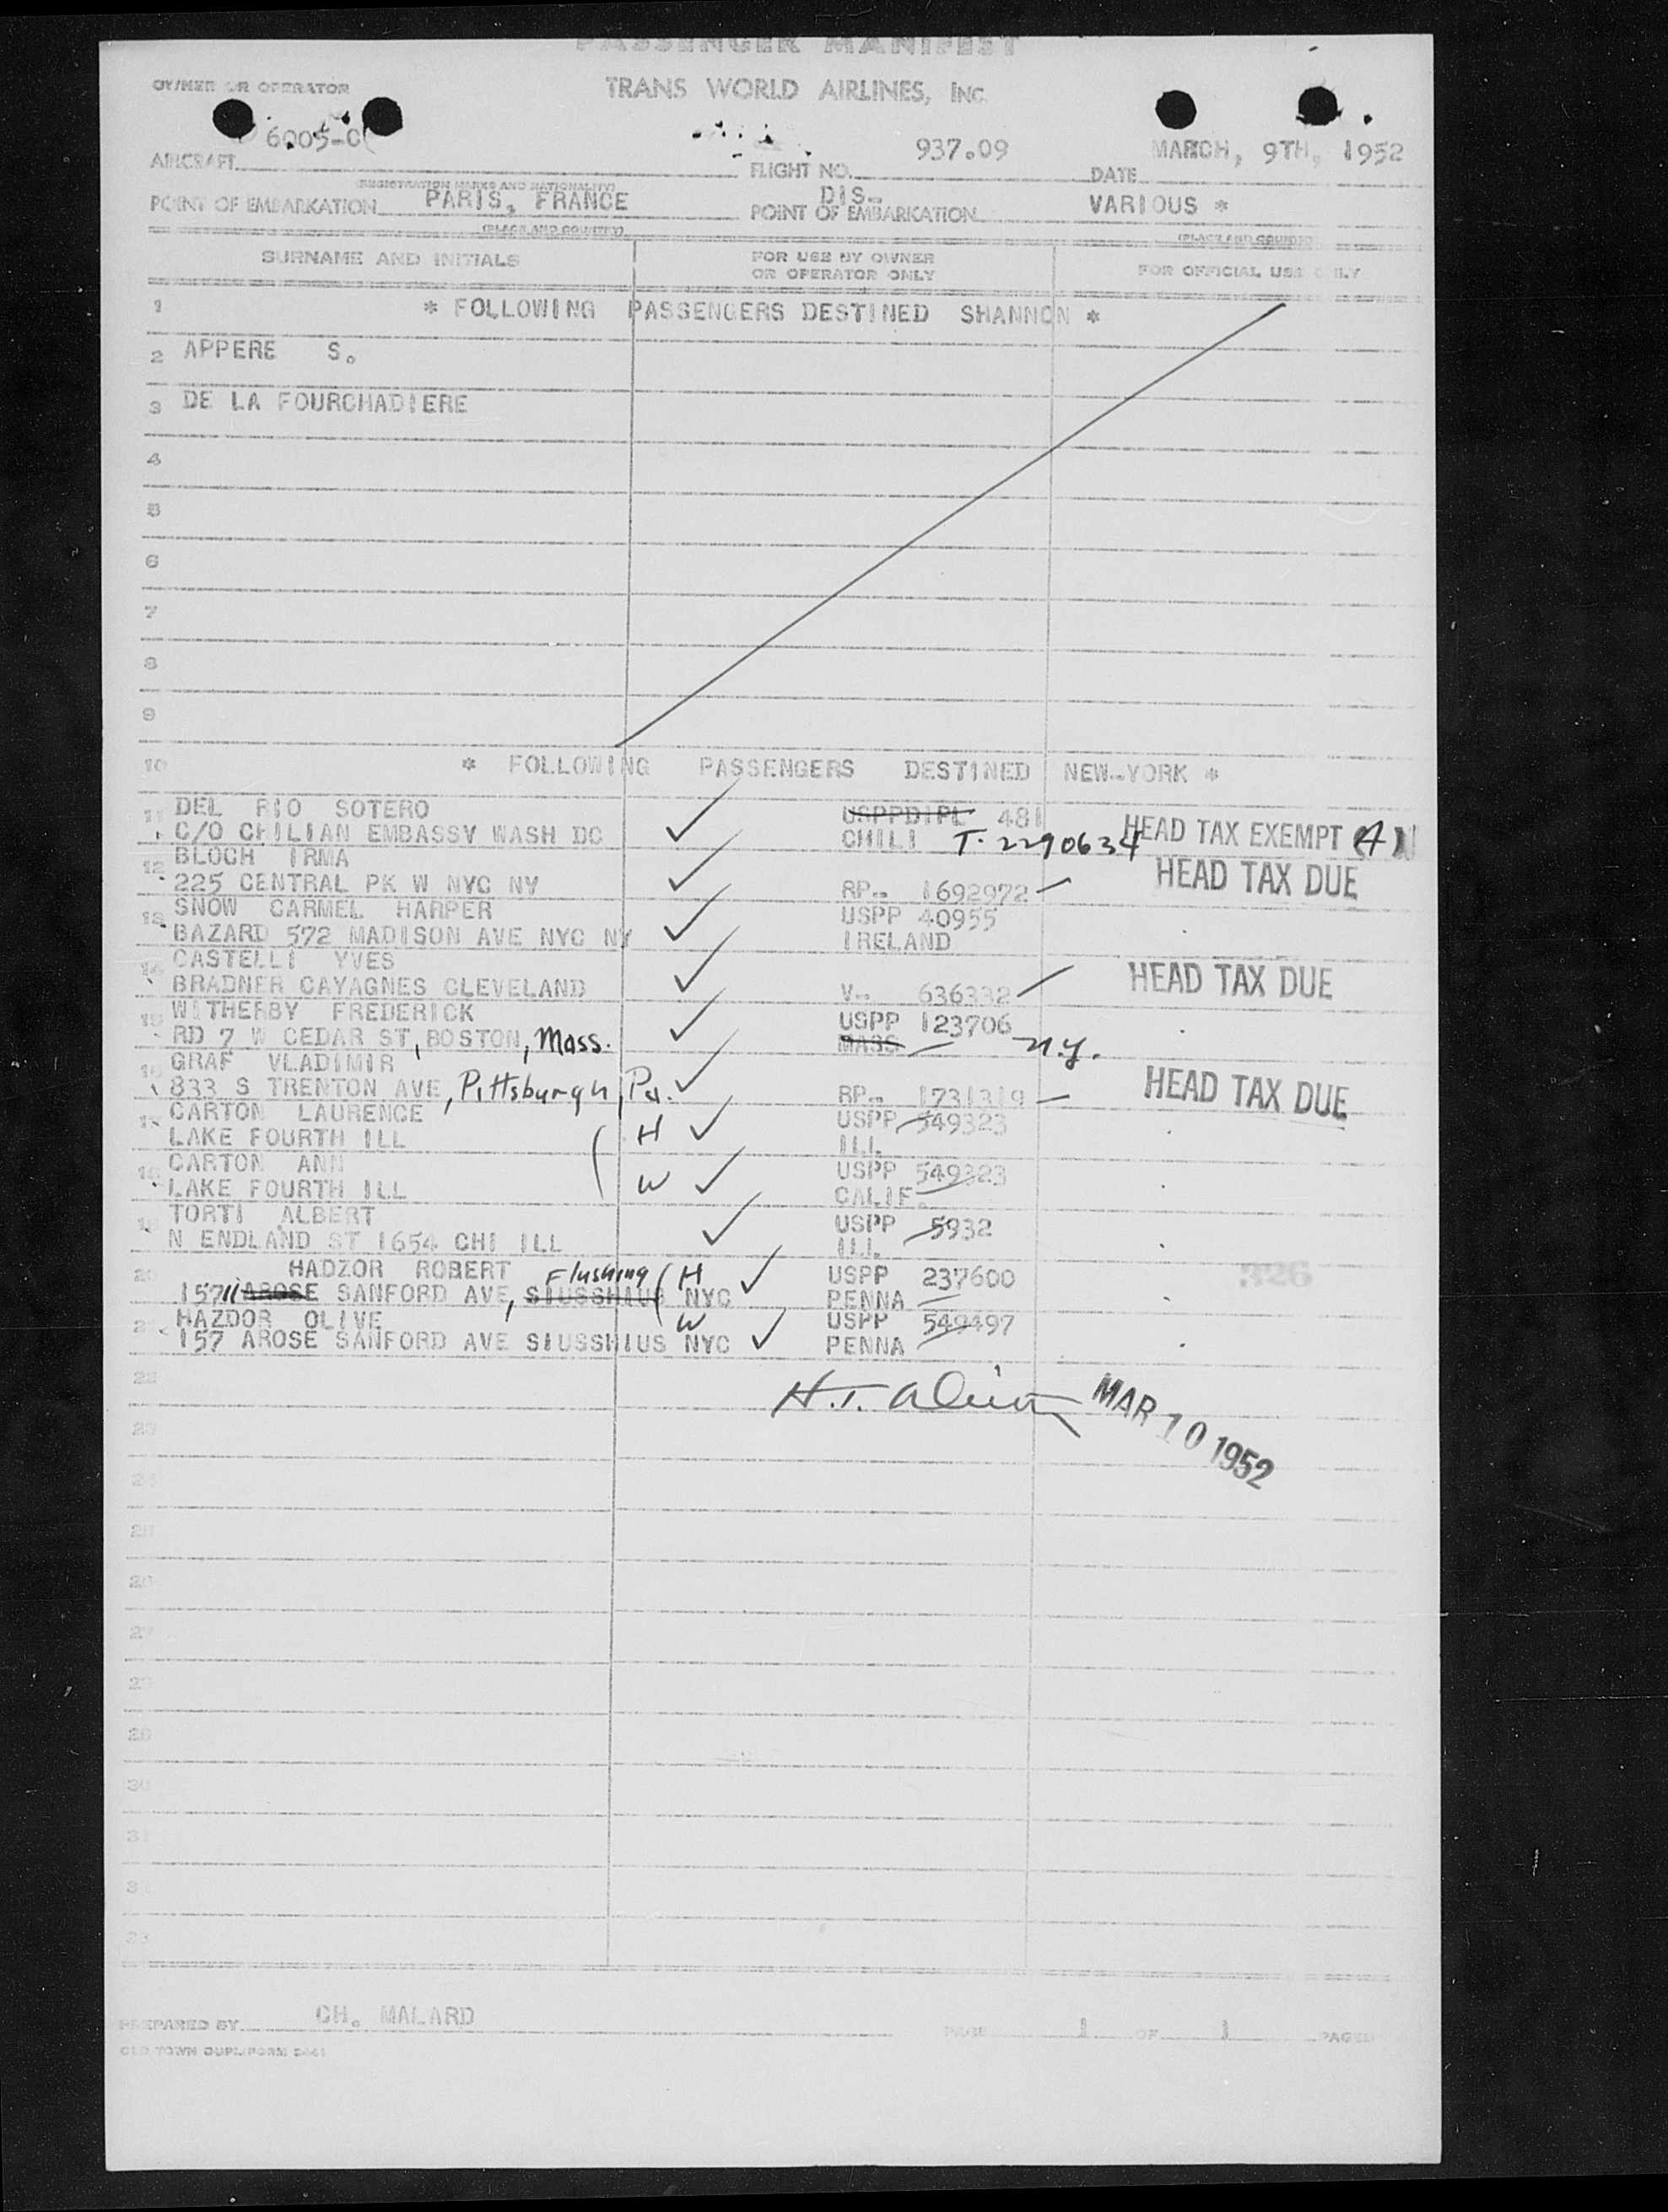 PASSENGER MANIFEST
OWNER OR OPERATOR TRANS WORLD AIRLINES, INC.
AIRCRAFT 6005-C FLIGHT NO. 937.09 DATE MARCH, 9TH, 1952
(REGISTRATION MARKS AND NATIONALITY)
POINT OF EMBARKATION PARIS, FRANCE DIS.. POINT OF EMBARKATION VARIOUS *
(PLACE AND COUNTRY) (PLACE AND COUNTRY)
SURNAME AND INITIALS FOR USE BY OWNER OR OPERATOR ONLY FOR OFFICIAL USE ONLY
1 * FOLLOWING PASSENGERS DESTINED SHANNON *
2 APPERE S.
3 DE LA FOURCHADIERE
4
5
6
7
8
9
10 * FOLLOWING PASSENGERS DESTINED NEW-YORK *
11 DEL RIO SOTERO USPPDIPL 481
C/O CHILIAN EMBASSY WASH DC CHILI T. 2290634 HEAD TAX EXEMPT
12 BLOCH IRMA HEAD TAX DUE
225 CENTRAL PK W NYC NY RP.. 1692972
13 SNOW CARMEL HARPER USPP 40955
BAZARD 572 MADISON AVE NYC NY IRELAND
14 CASTELLI YVES HEAD TAX DUE
BRADNER CAYAGNES CLEVELAND V.. 636332
15 WITHERBY FREDERICK USPP 123706
RD 7 W CEDAR ST, BOSTON, Mass. MASS N.Y.
16 GRAF VLADIMIR
833 S TRENTON AVE, Pittsburgh, Pa. RP.. 1731319 HEAD TAX DUE
17 CARTON LAURENCE USPP 549323
LAKE FOURTH ILL H ILL
18 CARTON ANN USPP 549323
LAKE FOURTH ILL W CALIF.
19 TORTI ALBERT USPP 5932
N ENDLAND ST 1654 CHI ILL ILL
20 HADZOR ROBERT Flushing H USPP 237600 326
157 11 AROSE SANFORD AVE, SIUSSHIUS NYC PENNA
21 HAZDOR OLIVE W USPP 549497
157 AROSE SANFORD AVE SIUSSHIUS NYC PENNA
22
MAR 10 1952
23
24
25
26
27
28
29
30
31
3
33
PREPARED BY CH. MALARD PAGE 1 OF 1 PAGES
OLD TOWN DUPLIFORM